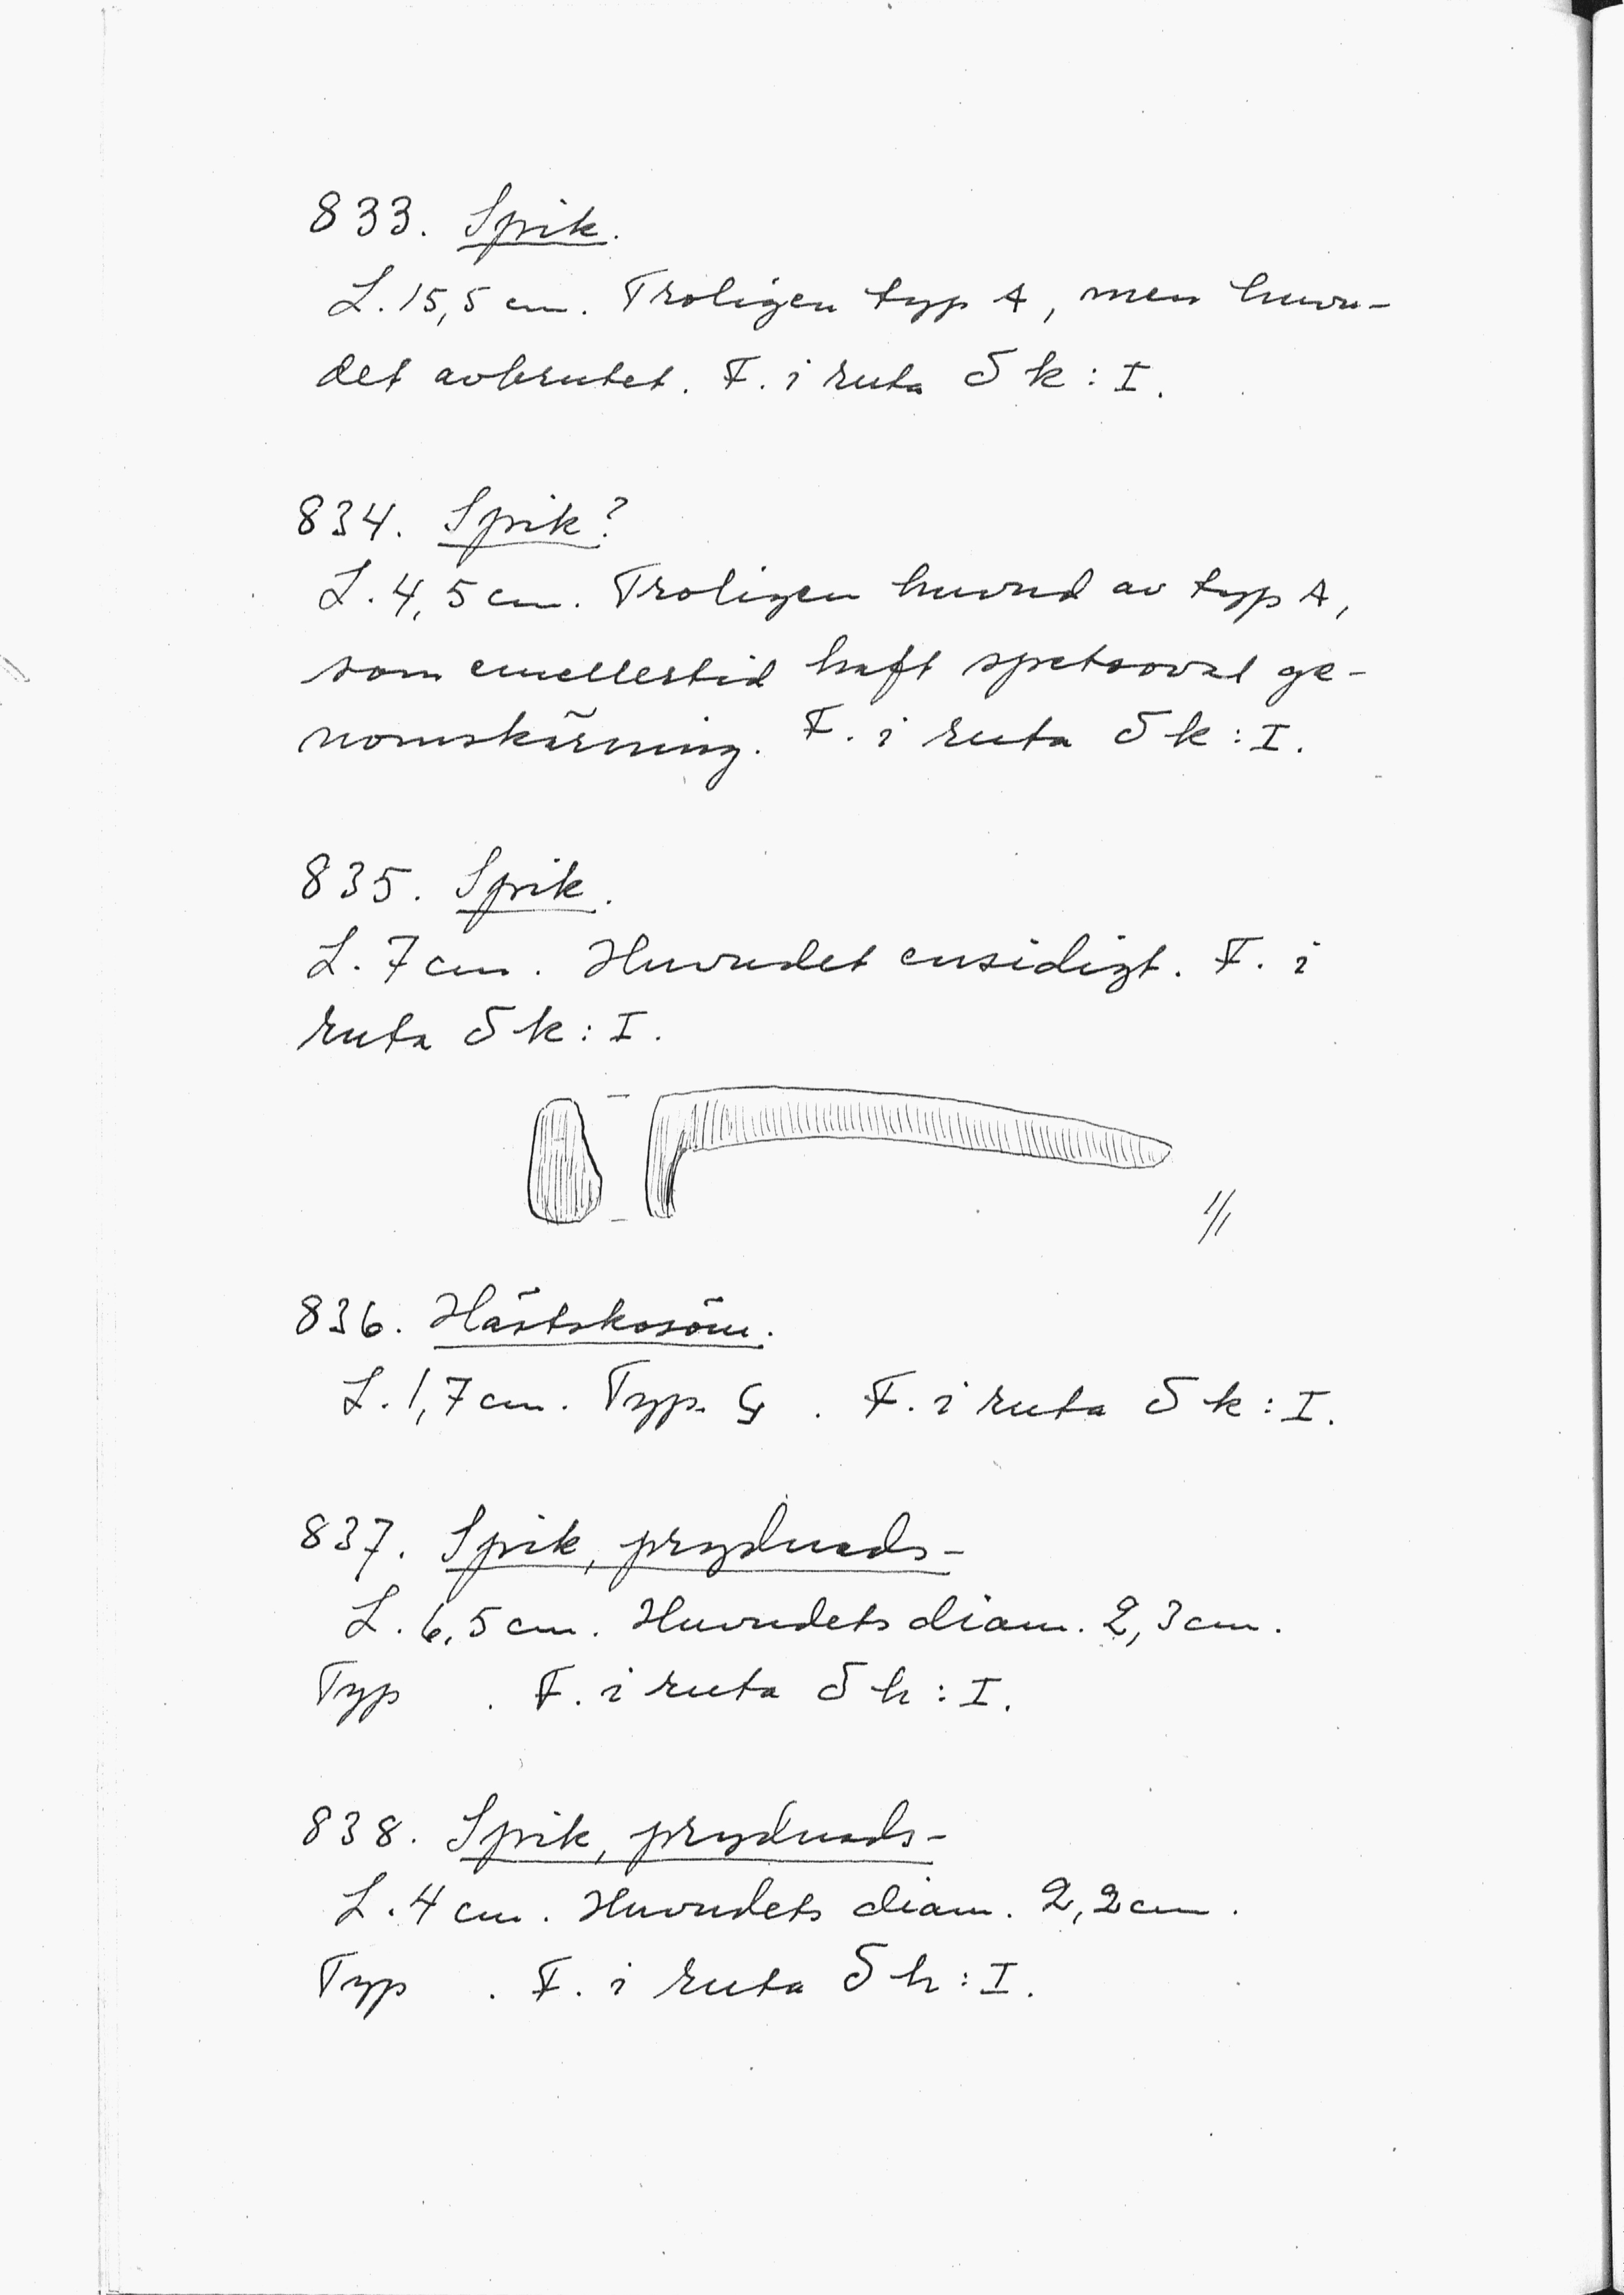 833. Spik.
L. 15,5 cm. Troligen typ A, men huvu-
det avbrutet. F. i ruta δ k : I.
834. Spik?
L. 4,5 cm. Troligen huvud av typ A,
som emellertid haft spetsoval ge-
nomskärning. F. i ruta δ k : I.
835. Spik.
L. 7 cm. Huvudet ensidigt. F. i
ruta δ k : I.
1/1
836. Hästskosöm.
L. 1,7 cm. Typ G . F. i ruta δ k : I.
837. Spik, prydnads-
L. 6,5 cm. Huvudets diam. 2,3 cm.
Typ . F. i ruta δ h : I.
838. Spik, prydnads-
L. 4 cm. Huvudets diam. 2,2 cm.
Typ . F. i ruta δ h : I.